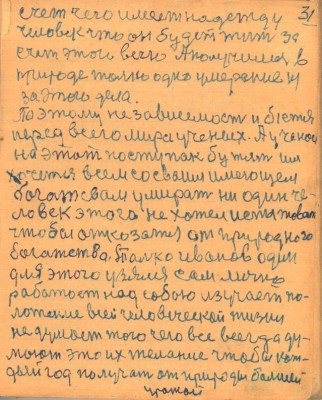 31
счет чего имеет надежду
человек что он будет жит за
счет этого всего А получился в
природе толко одно умерание и
за этого дела.
Поэтому независемост и бется
перед всего мира ученых. А ученой
на этот поступок бутит им
хочется всем со своим имеющем
богатствам умират ни один че-
ловек этого не хотел испытоват
чтобы отказатся от природного
богатства. Толко иванов один
для этого узялся сам лично
работает над собою изучает по-
ложение всей человеческой жизни
не думает того чего все всегда ду-
мают это их желание чтобы каж-
дый год получат от природы болшей
урожай